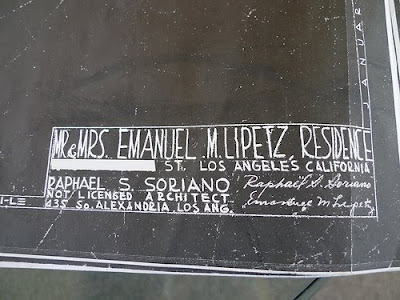 MR & MRS. EMANUEL M. LIPETZ RESIDENCE
ST. LOS ANGELES CALIFORNIA
RAPHAEL S. SORIANO Raphael S. Soriano
NOT LICENSED ARCHITECT
435 SO. ALEXANDRIA, LOS ANG. Emanuel M Lipetz
JANUAR